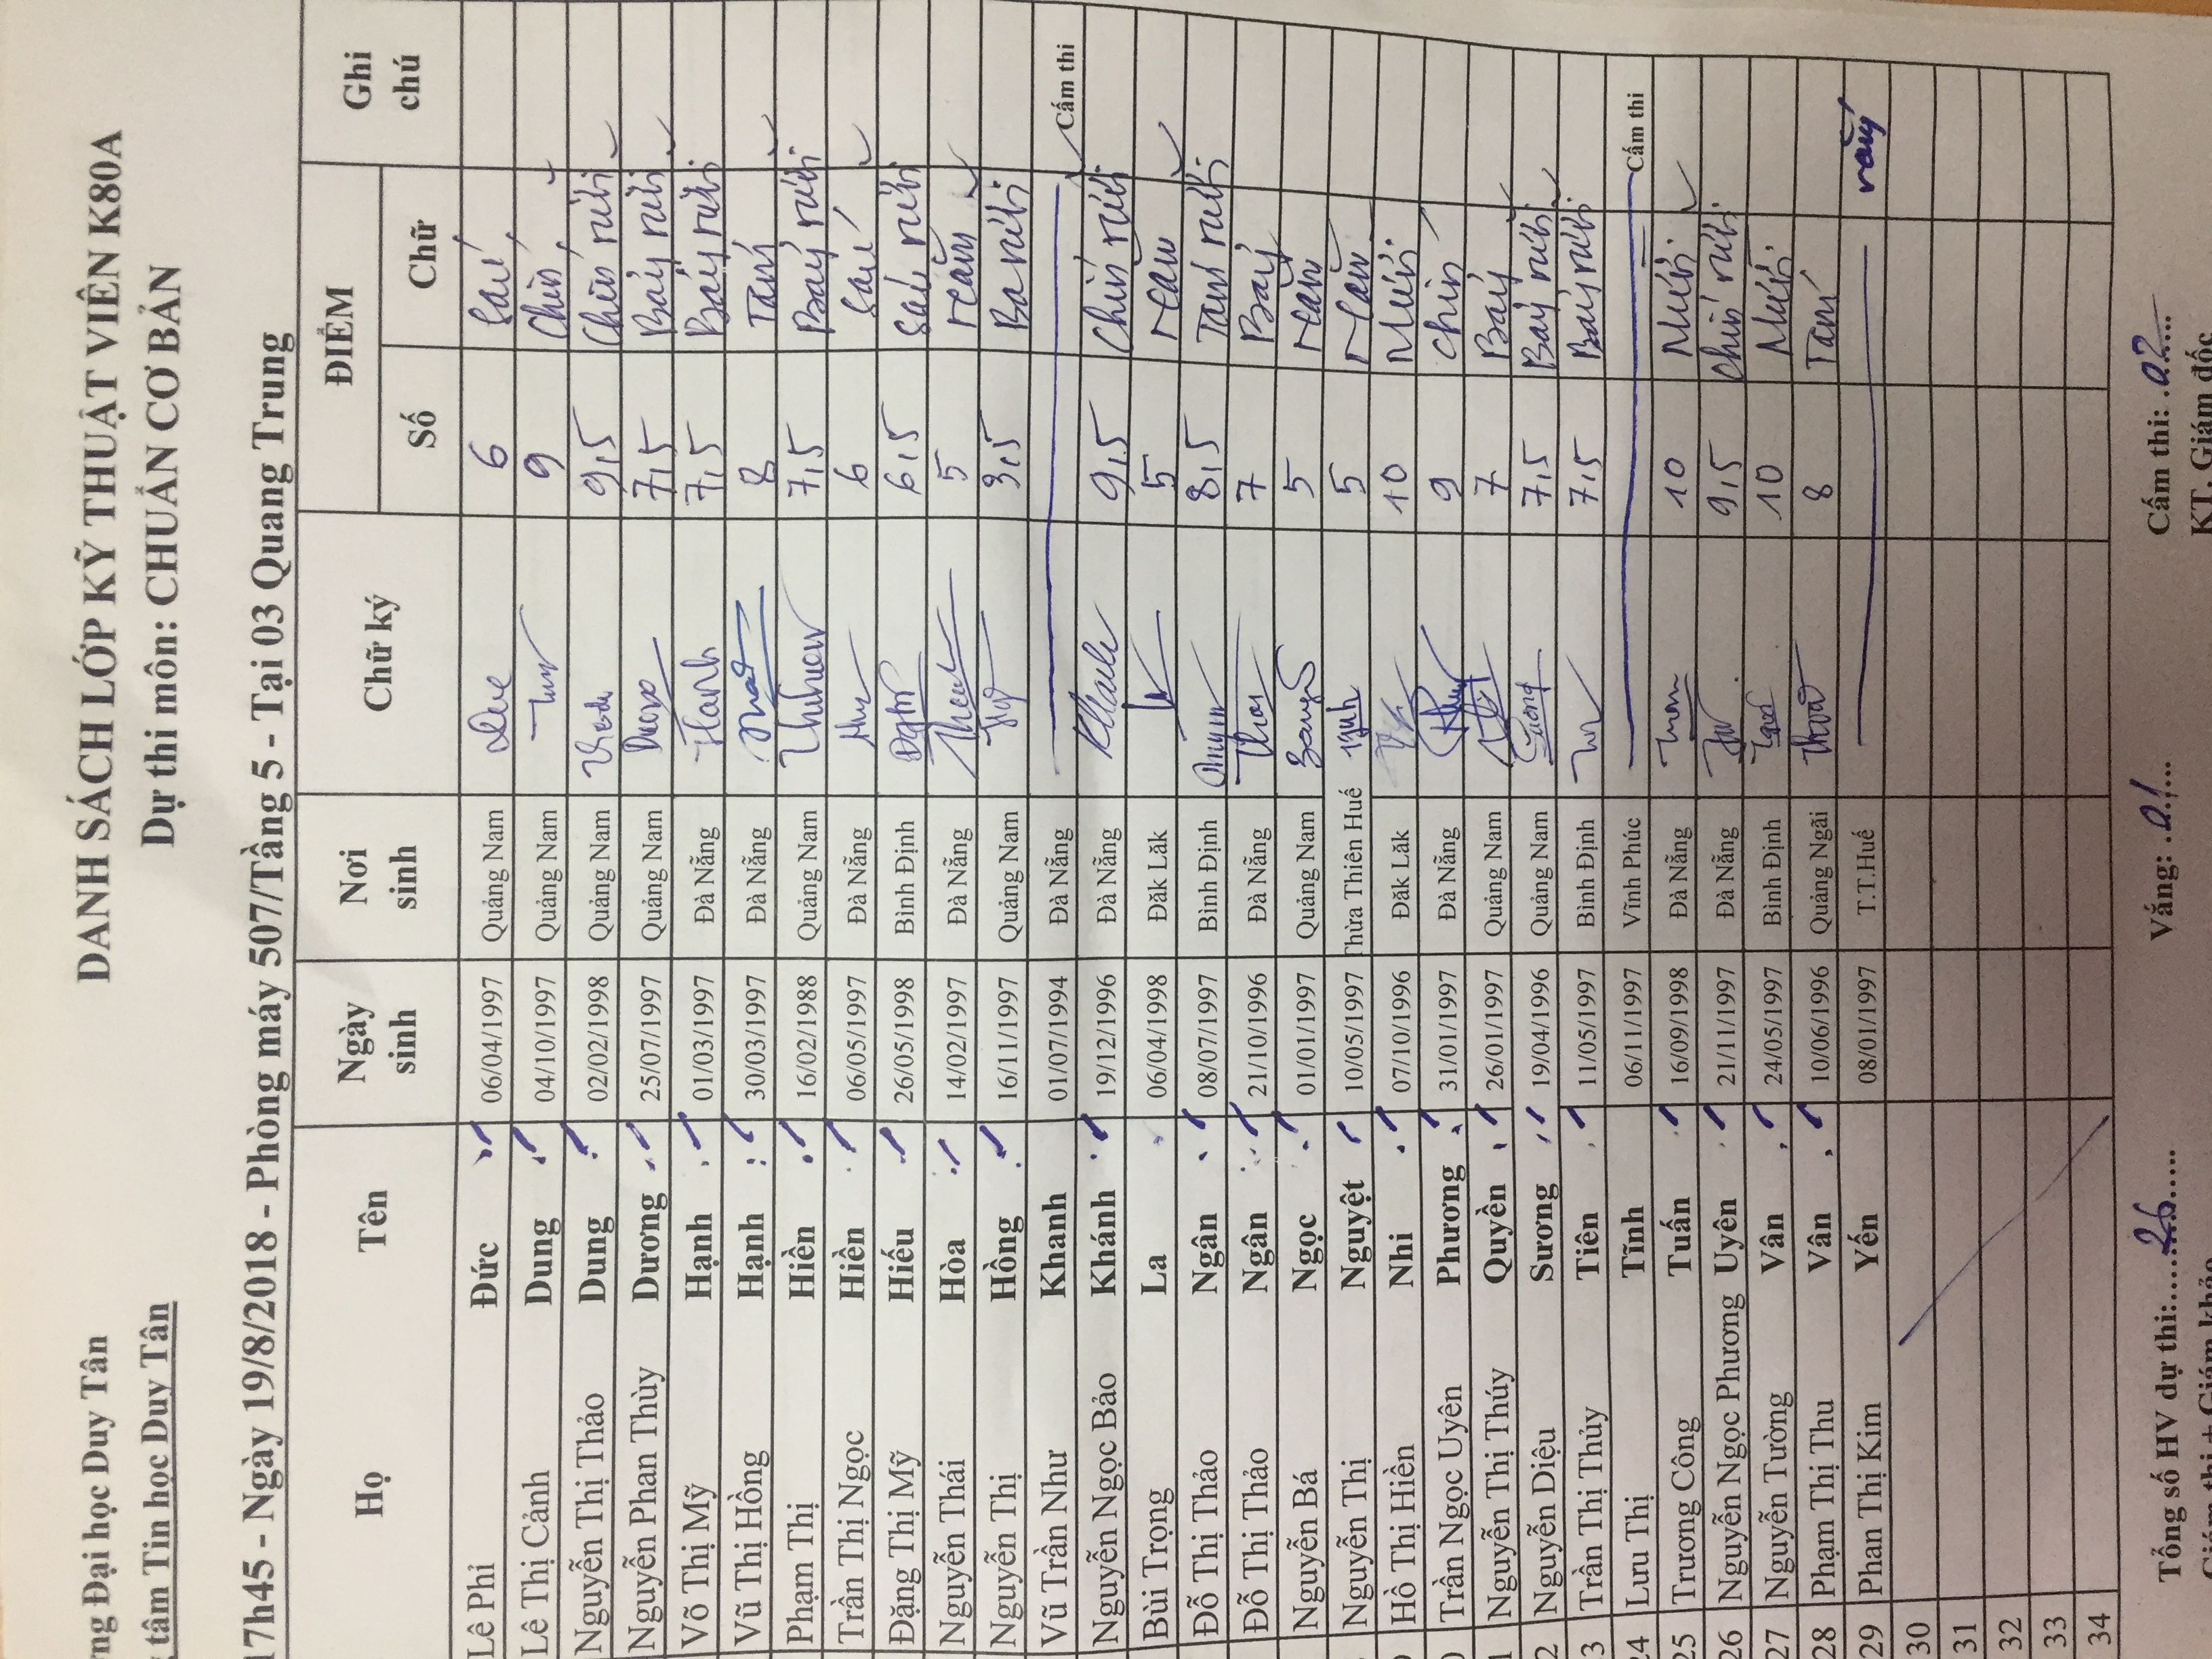 ng Đại học Duy Tân
tâm Tin học Duy Tân
DANH SÁCH LỚP KỸ THUẬT VIÊN K80A
Dự thi môn: CHUẨN CƠ BẢN
17h45 - Ngày 19/8/2018 - Phòng máy 507/Tầng 5 - Tại 03 Quang Trung
Họ Tên Ngày sinh Nơi sinh Chữ ký ĐIỂM Ghi chú
Số Chữ
Lê Phi Đức 06/04/1997 Quảng Nam 6 Sáu
Lê Thị Cảnh Dung 04/10/1997 Quảng Nam 9 Chín
Nguyễn Thị Thảo Dung 02/02/1998 Quảng Nam 9,5 Chín rưỡi
Nguyễn Phan Thùy Dương 25/07/1997 Quảng Nam 7,5 Bảy rưỡi
Võ Thị Mỹ Hạnh 01/03/1997 Đà Nẵng Hanh 7,5 Bảy rưỡi
Vũ Thị Hồng Hạnh 30/03/1997 Đà Nẵng 8 Tám
Phạm Thị Hiền 16/02/1988 Quảng Nam 7,5 Bảy rưỡi
Trần Thị Ngọc Hiền 06/05/1997 Đà Nẵng 6 Sáu
Đặng Thị Mỹ Hiếu 26/05/1998 Bình Định 6,5 Sáu rưỡi
Nguyễn Thái Hòa 14/02/1997 Đà Nẵng 5 năm
Nguyễn Thị Hồng 16/11/1997 Quảng Nam 3,5 Ba rưỡi
Vũ Trần Như Khanh 01/07/1994 Đà Nẵng Cấm thi
Nguyễn Ngọc Bảo Khánh 19/12/1996 Đà Nẵng 9,5 Chín rưỡi
Bùi Trọng La 06/04/1998 Đăk Lăk 5 năm
Đỗ Thị Thảo Ngân 08/07/1997 Bình Định 8,5 Tám rưỡi
Đỗ Thị Thảo Ngân 21/10/1996 Đà Nẵng 7 Bảy
Nguyễn Bá Ngọc 01/01/1997 Quảng Nam 5 năm
Nguyễn Thị Nguyệt 10/05/1997 Thừa Thiên Huế 5 năm
Hồ Thị Hiền Nhi 07/10/1996 Đăk Lăk 10 Mười
Trần Ngọc Uyên Phương 31/01/1997 Đà Nẵng 9 chín
Nguyễn Thị Thúy Quyền 26/01/1997 Quảng Nam 7 Bảy
2 Nguyễn Diệu Sương 19/04/1996 Quảng Nam Sương 7,5 Bảy rưỡi
3 Trần Thị Thủy Tiên 11/05/1997 Bình Định 7,5 Bảy rưỡi
24 Lưu Thị Tĩnh 06/11/1997 Vĩnh Phúc Cấm thi
25 Trương Công Tuấn 16/09/1998 Đà Nẵng 10 Mười
26 Nguyễn Ngọc Phương Uyên 21/11/1997 Đà Nẵng 9,5 Chín rưỡi
27 Nguyễn Tường Vân 24/05/1997 Bình Định 10 Mười
28 Phạm Thị Thu Vân 10/06/1996 Quảng Ngãi 8 Tám
29 Phan Thị Kim Yến 08/01/1997 T.T.Huế vắng
30
31
32
33
34
Tổng số HV dự thi:.....26..... Vắng: .01.... Cấm thi: .02....
Giám thị + Giám khảo KT. Giám đốc